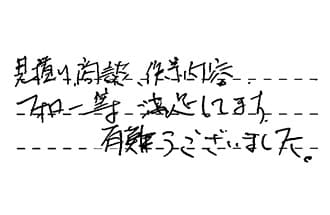 見積り、商談、作業内容
フォロー等 満足してます。
有難うございました。